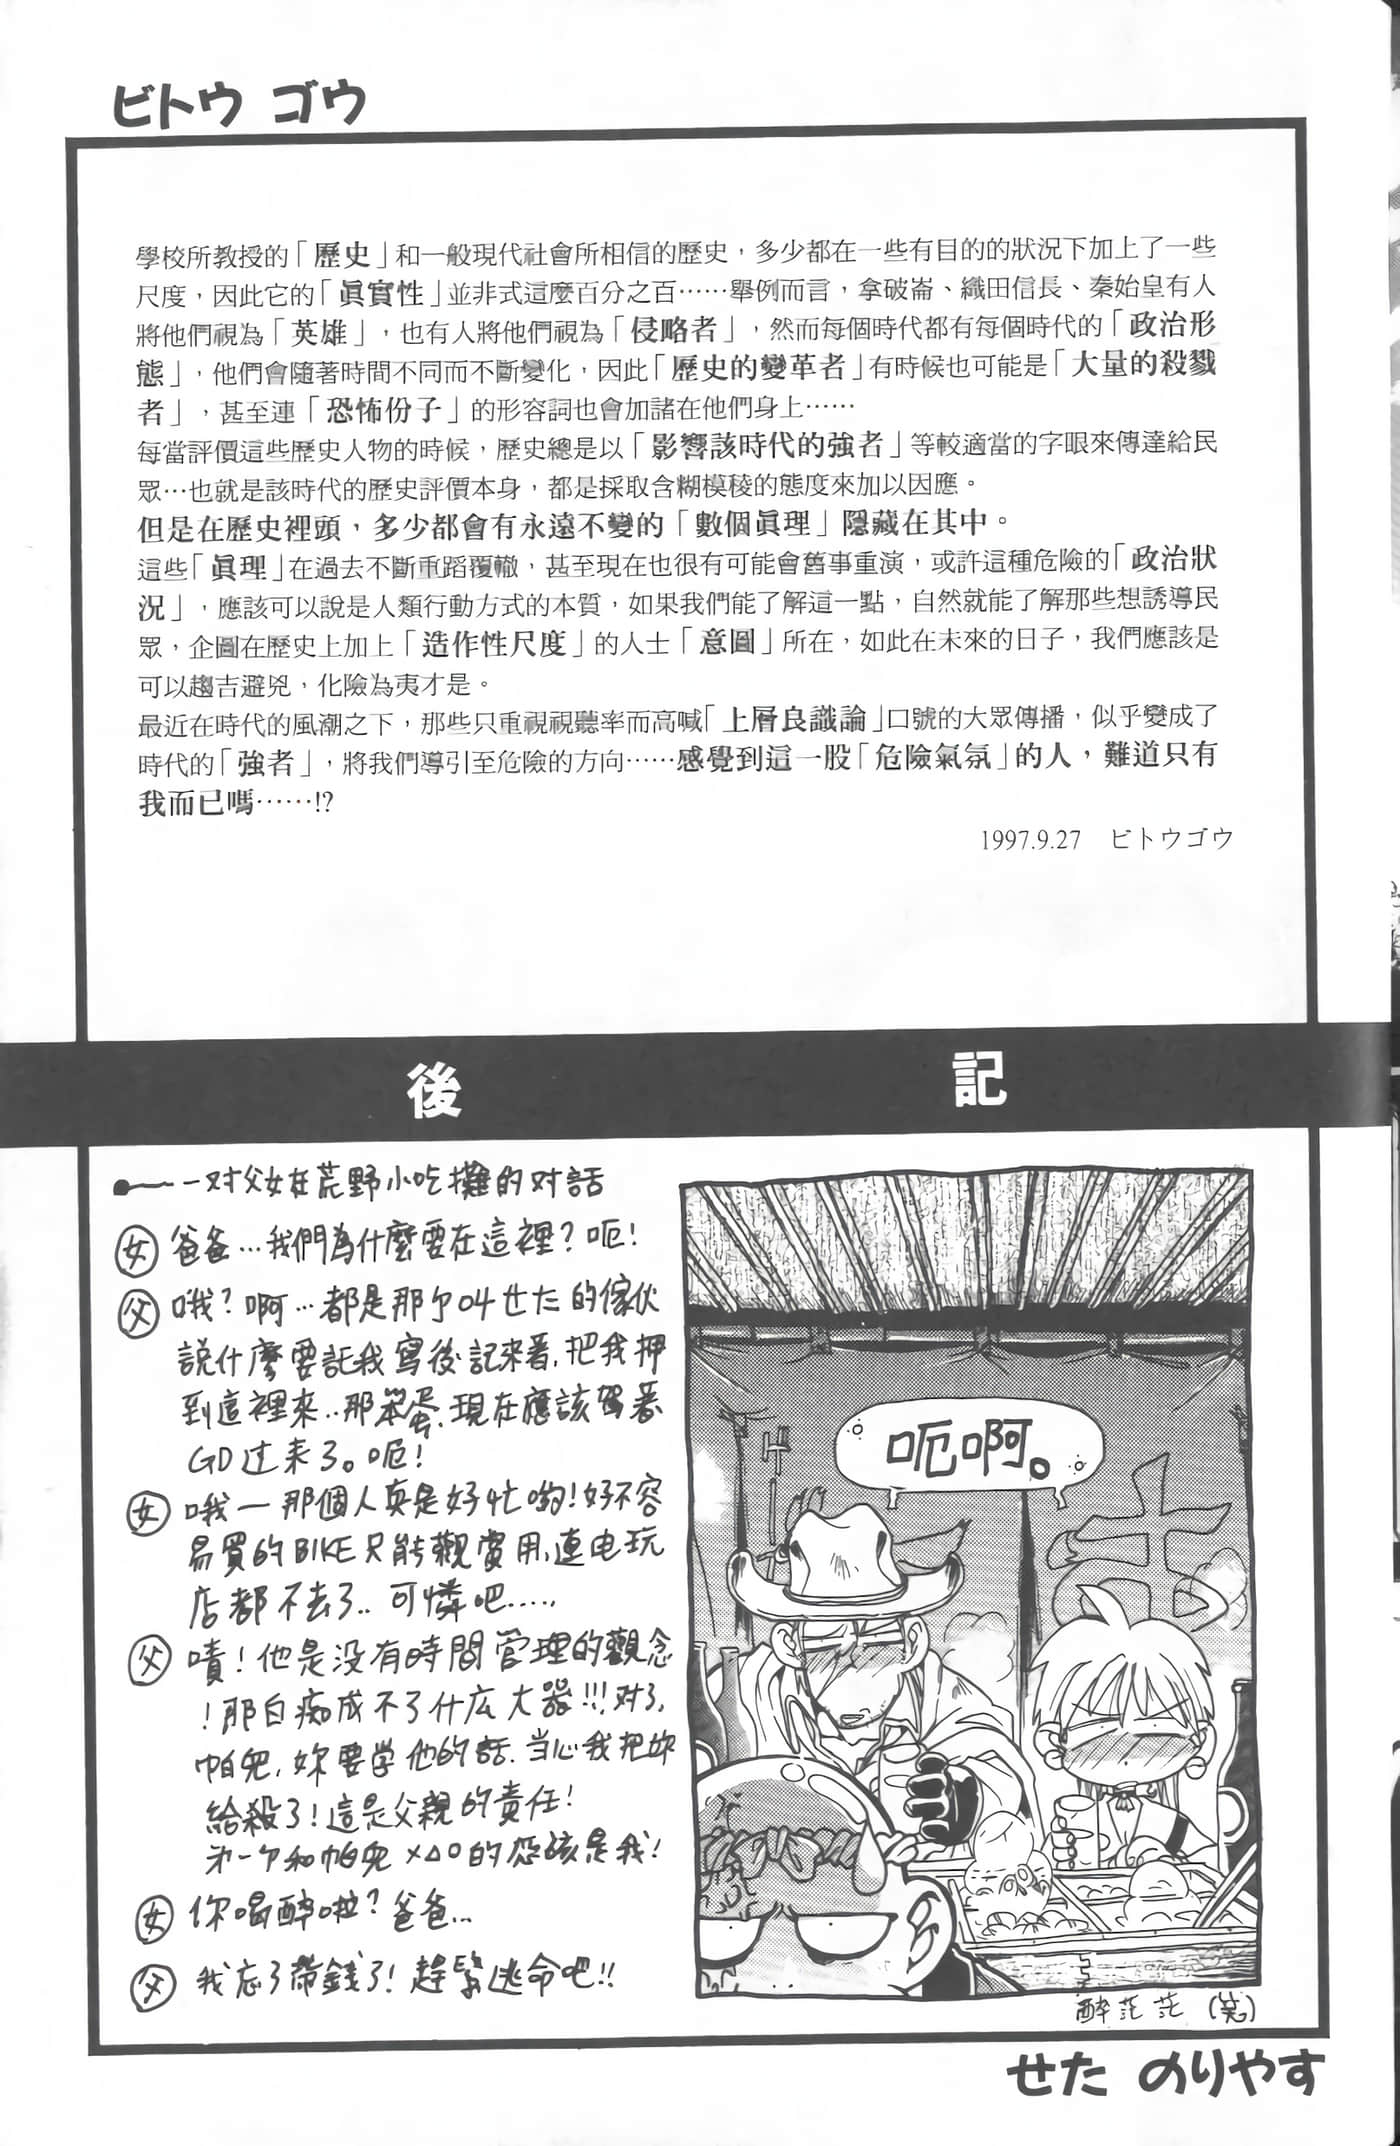 ビトウ ゴウ
學校所教授的「歷史」和一般現代社會所相信的歷史，多少都在一些有目的的狀況下加上了一些
尺度，因此它的「眞實性」並非式這麼百分之百……舉例而言，拿破崙、織田信長、秦始皇有人
將他們視為「英雄」，也有人將他們視為「侵略者」，然而每個時代都有每個時代的「政治形
態」，他們會隨著時間不同而不斷變化，因此「歷史的變革者」有時候也可能是「大量的殺戮
者」，甚至連「恐怖份子」的形容詞也會加諸在他們身上……
每當評價這些歷史人物的時候，歷史總是以「影響該時代的強者」等較適當的字眼來傳達給民
眾…也就是該時代的歷史評價本身，都是採取含糊模稜的態度來加以因應。
但是在歷史裡頭，多少都會有永遠不變的「數個眞理」隱藏在其中。
這些「眞理」在過去不斷重蹈覆轍，甚至現在也很有可能會舊事重演，或許這種危險的「政治狀
況」，應該可以說是人類行動方式的本質，如果我們能了解這一點，自然就能了解那些想誘導民
眾，企圖在歷史上加上「造作性尺度」的人士「意圖」所在，如此在未來的日子，我們應該是
可以趨吉避兇，化險為夷才是。
最近在時代的風潮之下，那些只重視視聽率而高喊「上層良識論」口號的大眾傳播，似乎變成了
時代的「強者」，將我們導引至危險的方向……感覺到這一股「危險氣氛」的人，難道只有
我而已嗎……!?
1997.9.27 ビトウゴウ
後記
一对父女在荒野小吃攤的对話
女 爸爸…我們為什麼要在這裡？呃！
父 哦？啊…都是那个叫せた的傢伙
說什麼要託我寫後記來著,把我押
到這裡來..那笨蛋.現在應該駕著
GD过来了。呃！
女 哦一那個人真是好忙喲！好不容
易買的BIKE只能觀賞用,連电玩
店都不去了..可憐吧.....
父 嘖！他是没有時間管理的觀念
！那白痴成不了什広大器!!!对了,
帕兒,妳要学他的話.当心我把妳
給殺了！這是父親的責任！
第一个和帕兒×△○的应該是我！
女 你喝醉啦？爸爸…
父 我忘了帶錢了！趕緊逃命吧!!
呃啊。
醉茫茫（笑）
せた のりやす